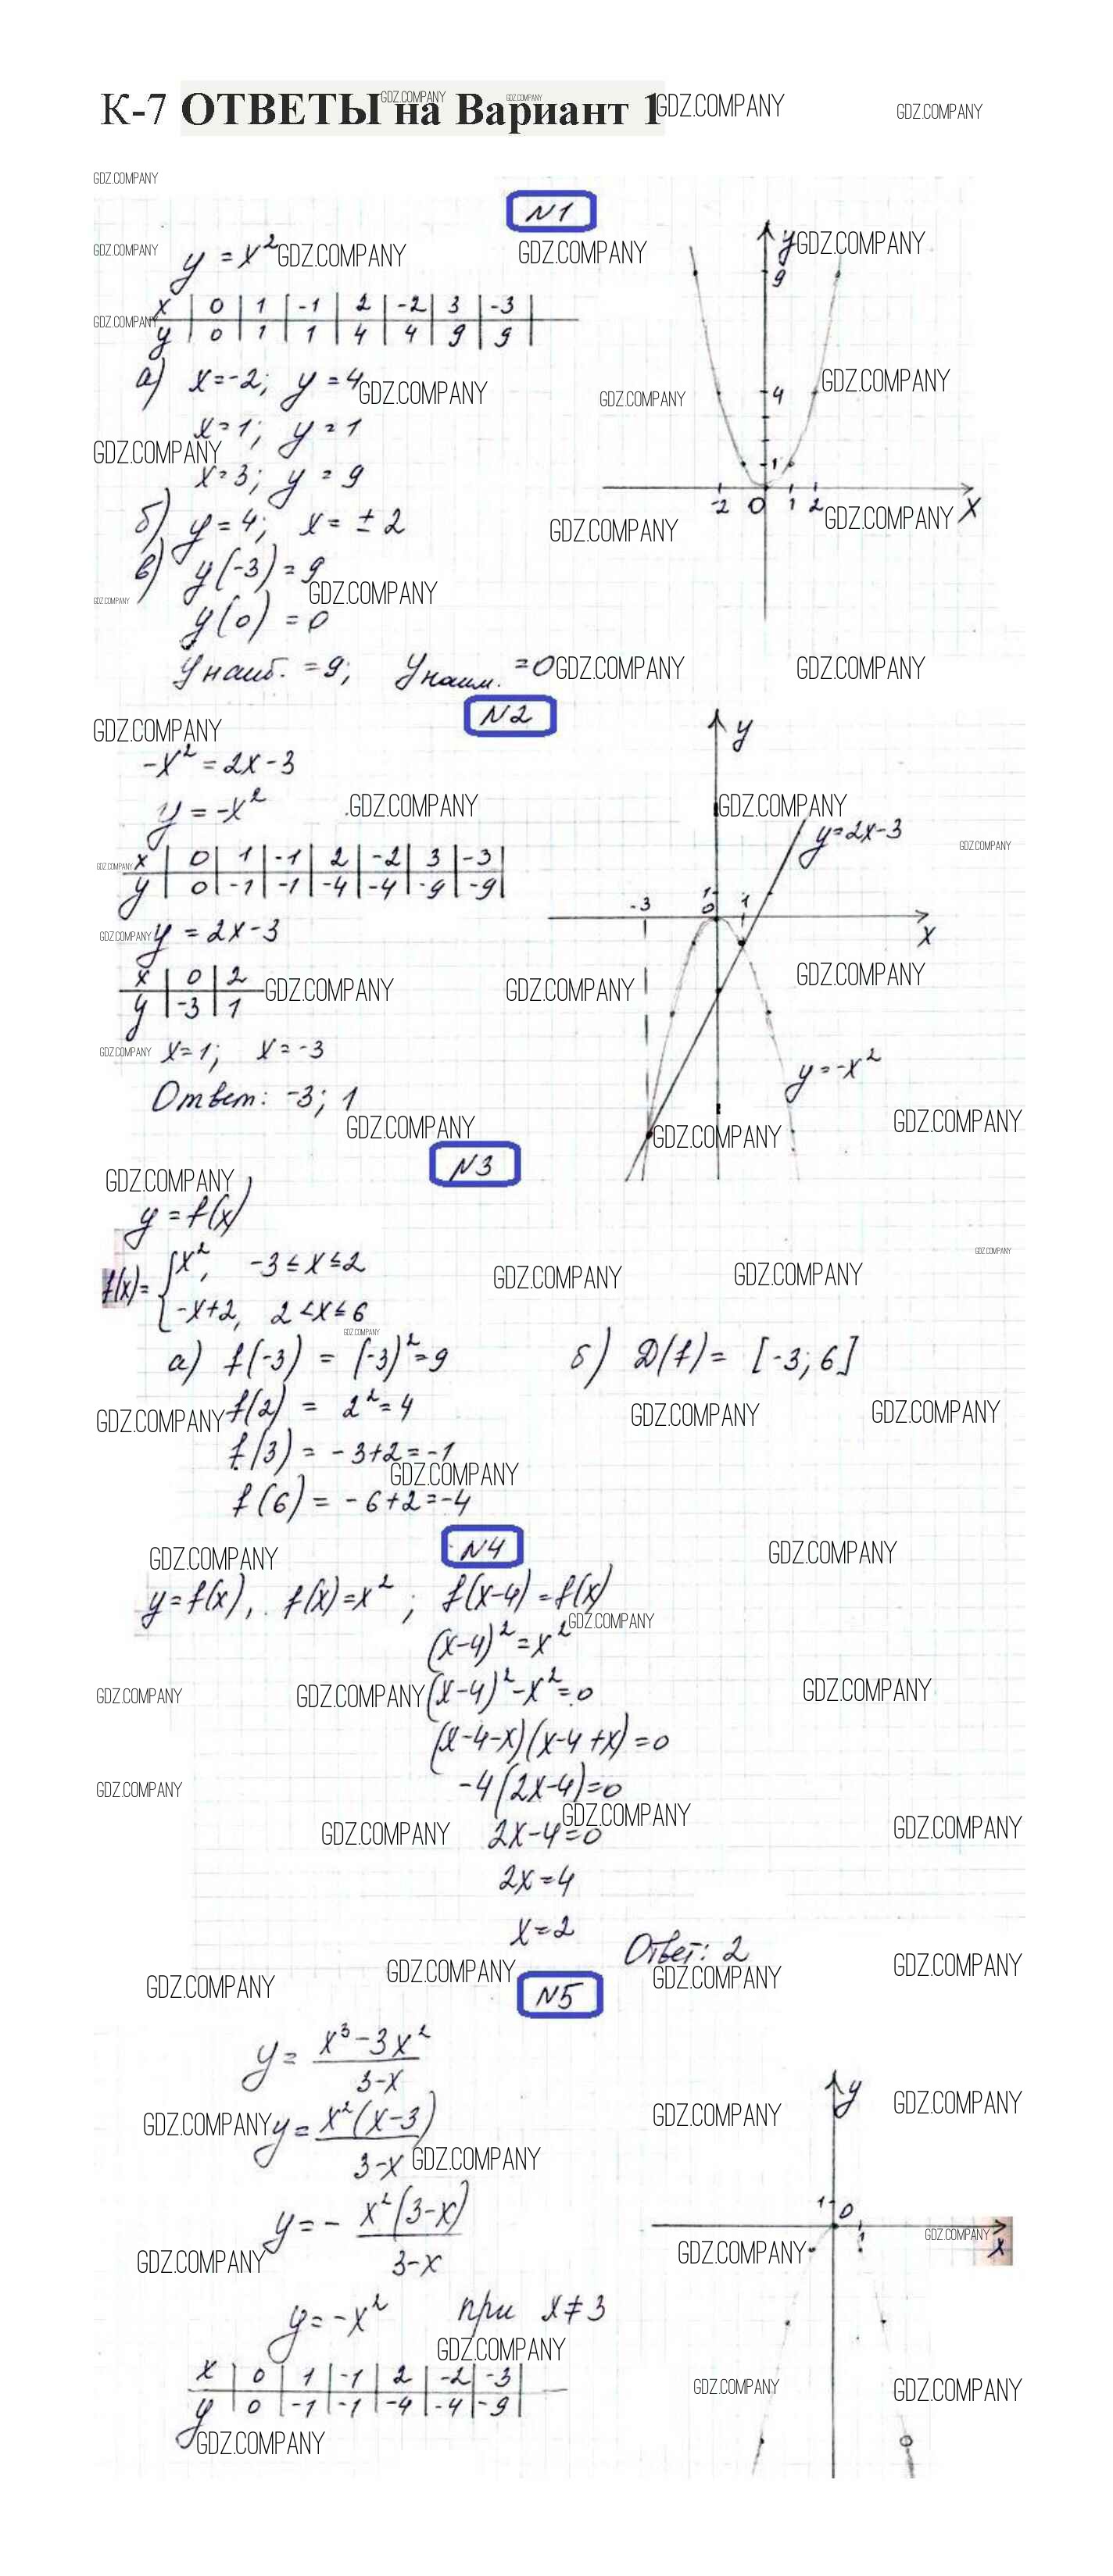 К-7 ОТВЕТЫ на Вариант 1
GDZ.COMPANY
N1
y = x²
x | 0 | 1 | -1 | 2 | -2 | 3 | -3 |
y | 0 | 1 | 1 | 4 | 4 | 9 | 9 |
а) x=-2; y=4
x=1; y=1
x=3; y=9
б) y=4; x=±2
в) y(-3)=9
y(0)=0
yнаиб.=9; yнаим.=0
y
9
4
1
-2 0 1 2
x
N2
-x²=2x-3
y=-x²
x | 0 | 1 | -1 | 2 | -2 | 3 | -3 |
y | 0 | -1 | -1 | -4 | -4 | -9 | -9 |
y=2x-3
x | 0 | 2
y | -3 | 1
x=1; x=-3
Ответ: -3; 1
y
y=2x-3
-3 1 0 1
x
y=-x²
N3
y=f(x)
f(x)= { x², -3≤x≤2
-x+2, 2<x≤6
а) f(-3) = (-3)²=9
б) D(f)= [-3; 6]
f(2) = 2²=4
f(3) = -3+2=-1
f(6) = -6+2=-4
N4
y=f(x), f(x)=x²; f(x-4)=f(x)
(x-4)²=x²
(x-4)²-x²=0
(x-4-x)(x-4+x)=0
-4(2x-4)=0
2x-4=0
2x=4
x=2
Ответ: 2
N5
y= (x³-3x²)/(3-x)
y= x²(x-3)/(3-x)
y=- x²(3-x)/(3-x)
y=-x² при x≠3
x | 0 | 1 | -1 | 2 | -2 | -3 |
y | 0 | -1 | -1 | -4 | -4 | -9 |
y
1 0
1
x